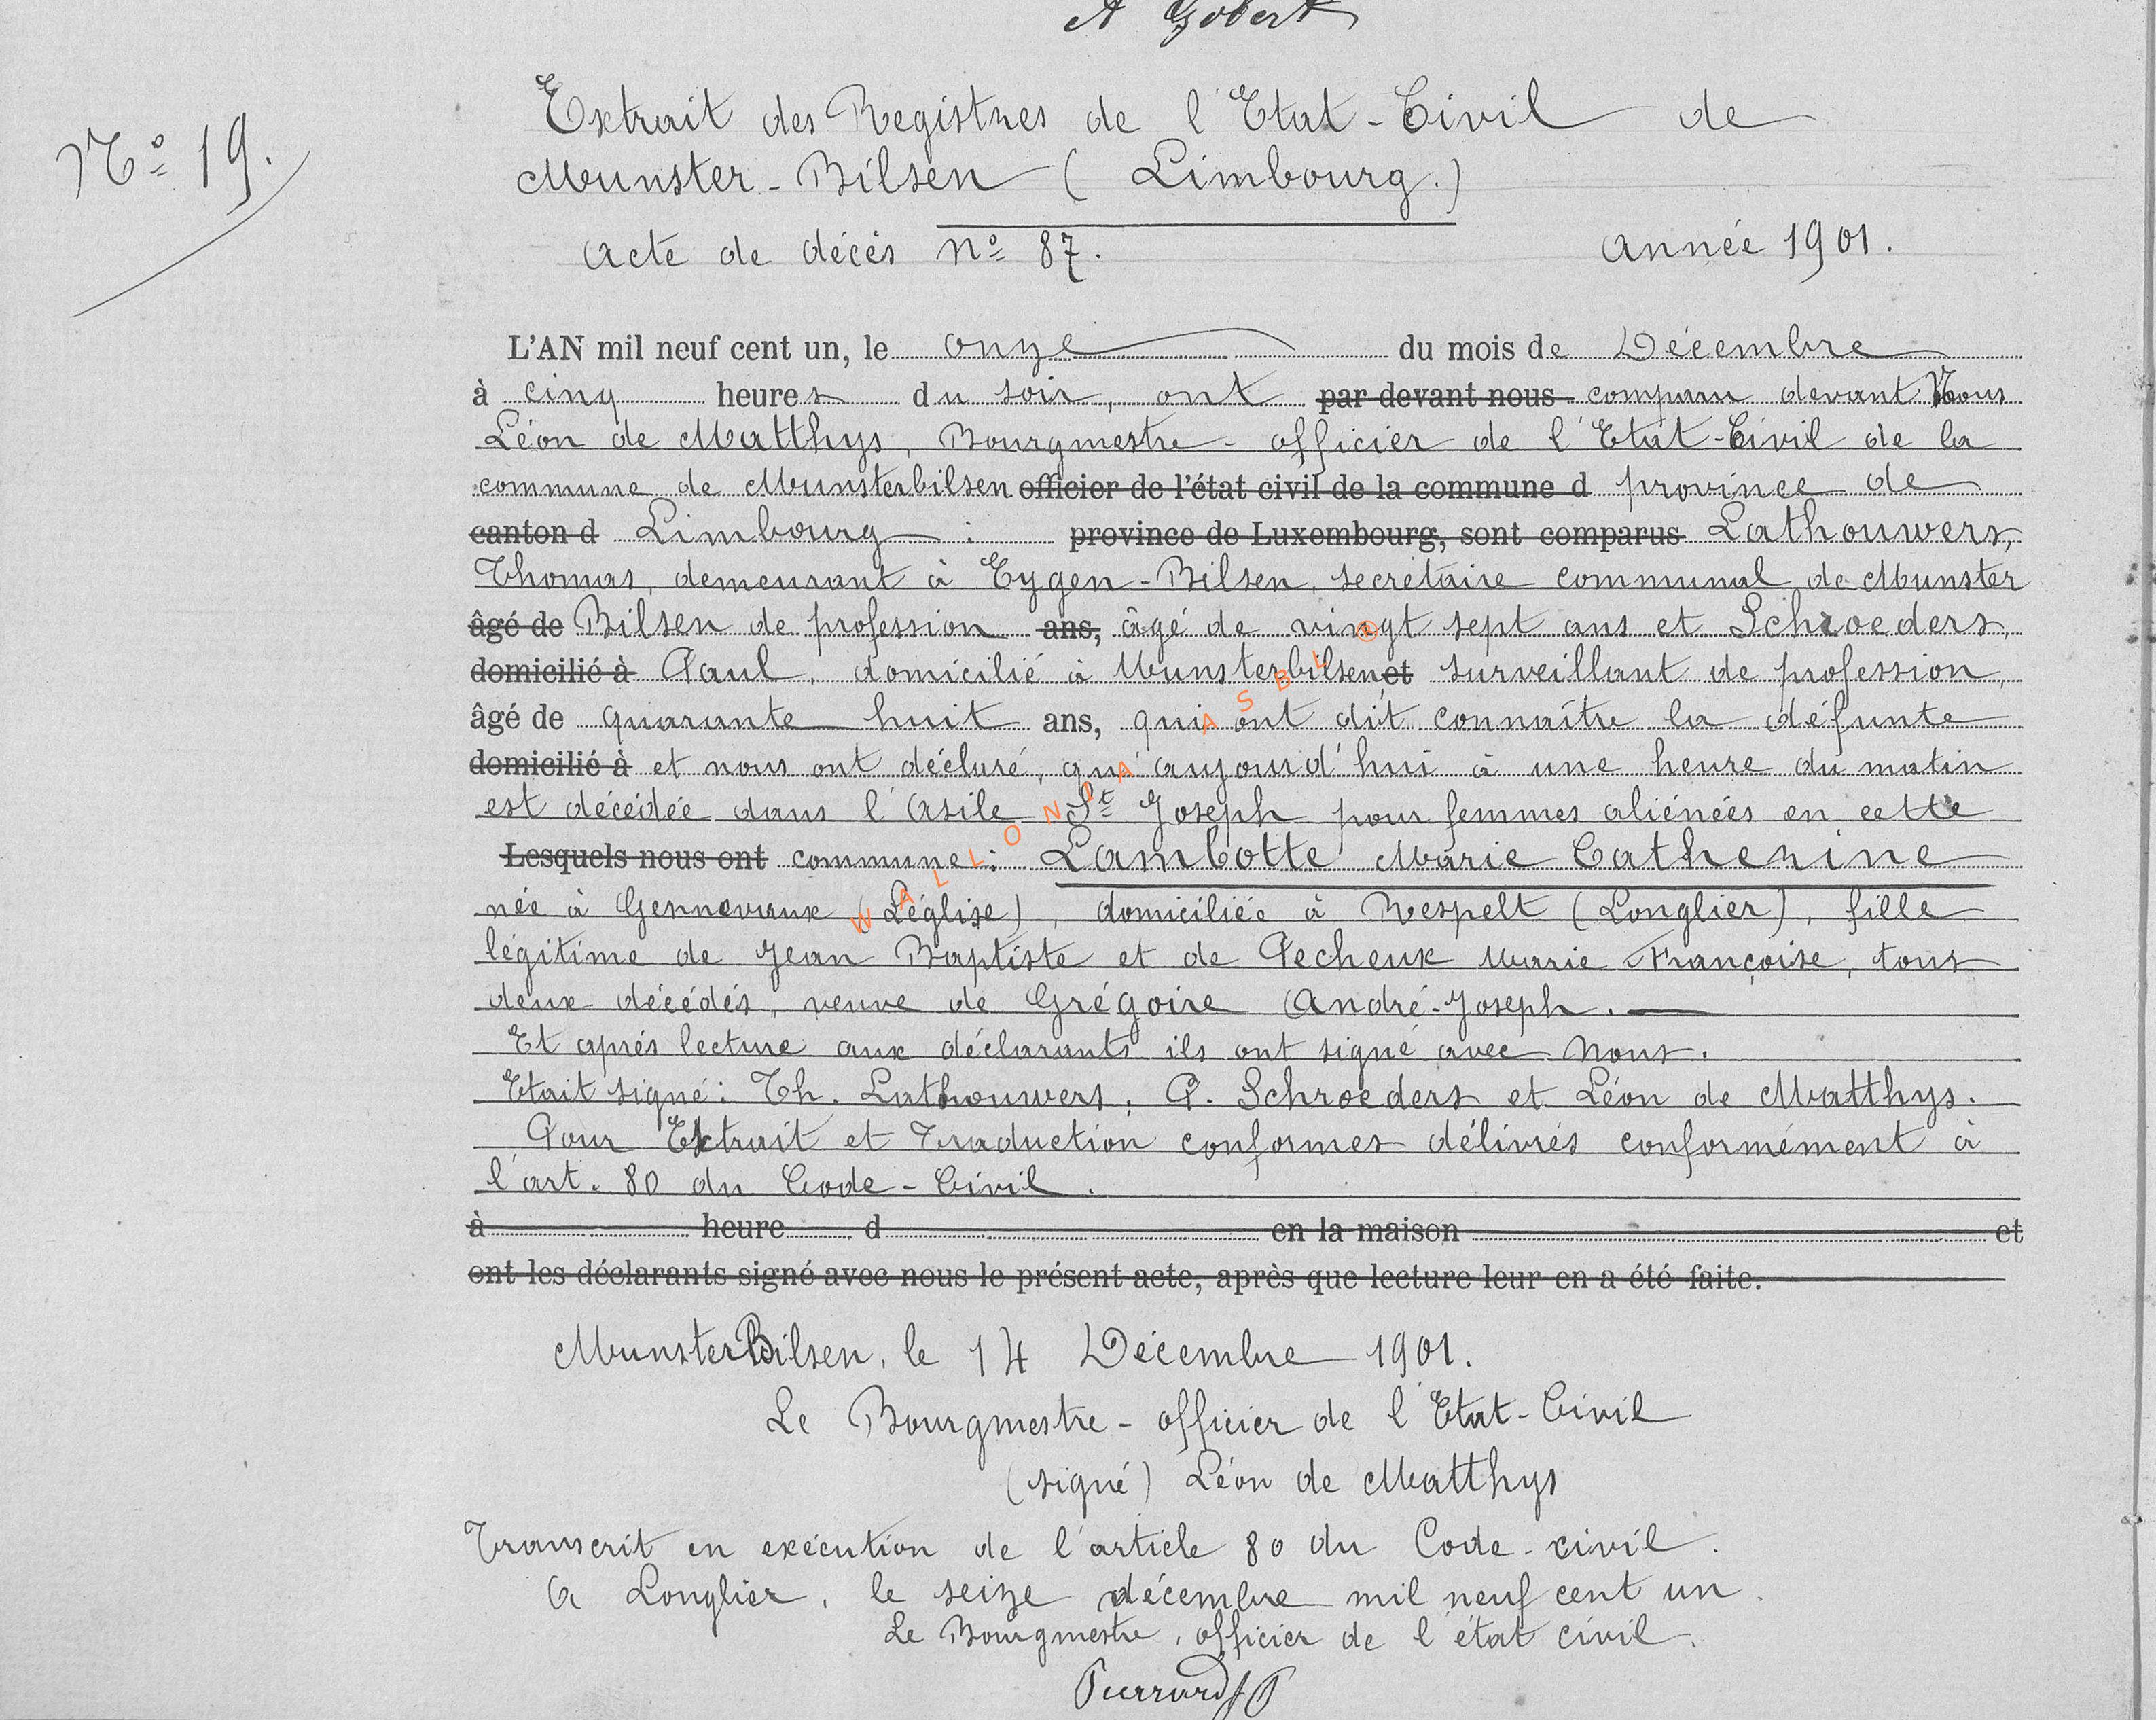 A Gobert
Extrait des Registres de l'Etat-Civil de
N° 19.
Munster-Bilsen (Limbourg.)
Acte de décès N° 87. Année 1901.
L'AN mil neuf cent un, le onze du mois de Décembre
à cinq heures du soir, ont par devant nous comparu devant Nous
Léon de Matthys, Bourgmestre-officier de l'Etat-Civil de la
commune de Munsterbilsen officier de l'état civil de la commune d province de
canton d Limbourg : province de Luxembourg, sont comparus Lathouwers,
Thomas, demeurant à Eygen-Bilsen, secrétaire communal de Munster
âgé de Bilsen de profession ans, âgé de vingt sept ans et Schroeders,
domicilié à Paul, domicilié à Munsterbilsen et surveillant de profession,
âgé de quarante huit ans, qui ont dit connaître la défunte
domicilié à et nous ont déclaré, qu'aujourd'hui à une heure du matin
est décédée dans l'Asile St Joseph pour femmes aliénées en cette
Lesquels nous ont commune : Lambotte Marie Catherine
née à Gennevaux (Léglise), domiciliée à Respelt (Longlier), fille
légitime de Jean Baptiste et de Pecheux Marie Françoise, tous
deux décédés, veuve de Grégoire André-Joseph.
Et après lecture aux déclarants ils ont signé avec Nous.
Etait signé : Th. Lathouwers, P. Schroeders et Léon de Matthys.
Pour Extrait et Traduction conformes délivrés conformément à
l'art. 80 du Code-Civil.
à heure d en la maison et
ont les déclarants signé avec nous le présent acte, après que lecture leur en a été faite.
MunsterBilsen, le 14 Décembre 1901.
Le Bourgmestre-officier de l'Etat-Civil
(signé) Léon de Matthys
Transcrit en exécution de l'article 80 du Code-civil.
A Longlier, le seize décembre mil neuf cent un.
Le Bourgmestre, officier de l'état civil.
WALLONIA ASBL ®